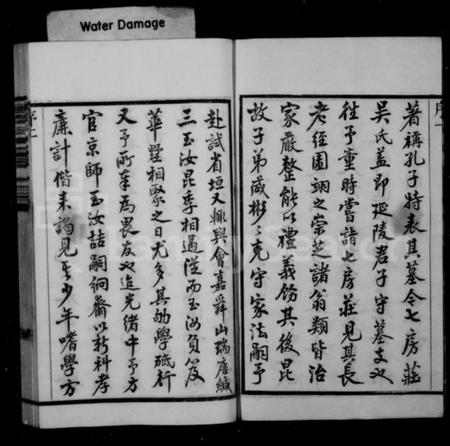 Water Damage
序一
著稱孔子特表其墓今七房莊
吳氏蓋即延陵君子守墓支也
往予童時嘗詣七房莊見其長
老經圃炳之崇芝諸翁類皆治
家嚴整能以禮義飭其後昆
故子弟咸彬彬克守家法嗣予
赴試省垣又輒與會嘉舜山瑞唐緘
三玉汝昆季相過從而玉汝負笈
華墅相聚之日尤多其劬學砥行
又予所奉為畏友也迨光緒中予方
官京師玉汝喆嗣伺齋以新科孝
廉計偕來謁見其少年嗜學方
序二